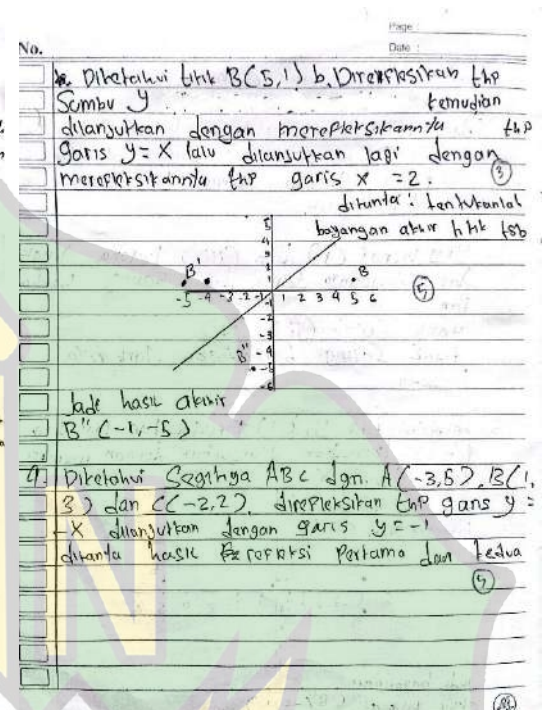 Page :
No.
Date :
Diketahui titik B(5,1) b. Direfleksikan thp
Sumbu y kemudian
dilanjutkan dengan merefleksikannya thp
garis y = x lalu dilanjutkan lagi dengan
merefleksikannya thp garis x = 2. 3
ditunta : tentukanlah
bayangan akhir titik tsb
5
4
3
2
1
B' B
-5 -4 -3 -2 -1 1 2 3 4 5 6 5
-1
-2
-3
B'' -4
-5
-6
Jadi hasil akhir
B'' (-1, -5)
9. Diketahui Segitiga ABC dgn. A(-3,5), B(1,
3) dan C(-2,2), direfleksikan thp garis y =
-x dilanjutkan dengan garis y = -1
ditanya hasil refleksi Pertama dan kedua